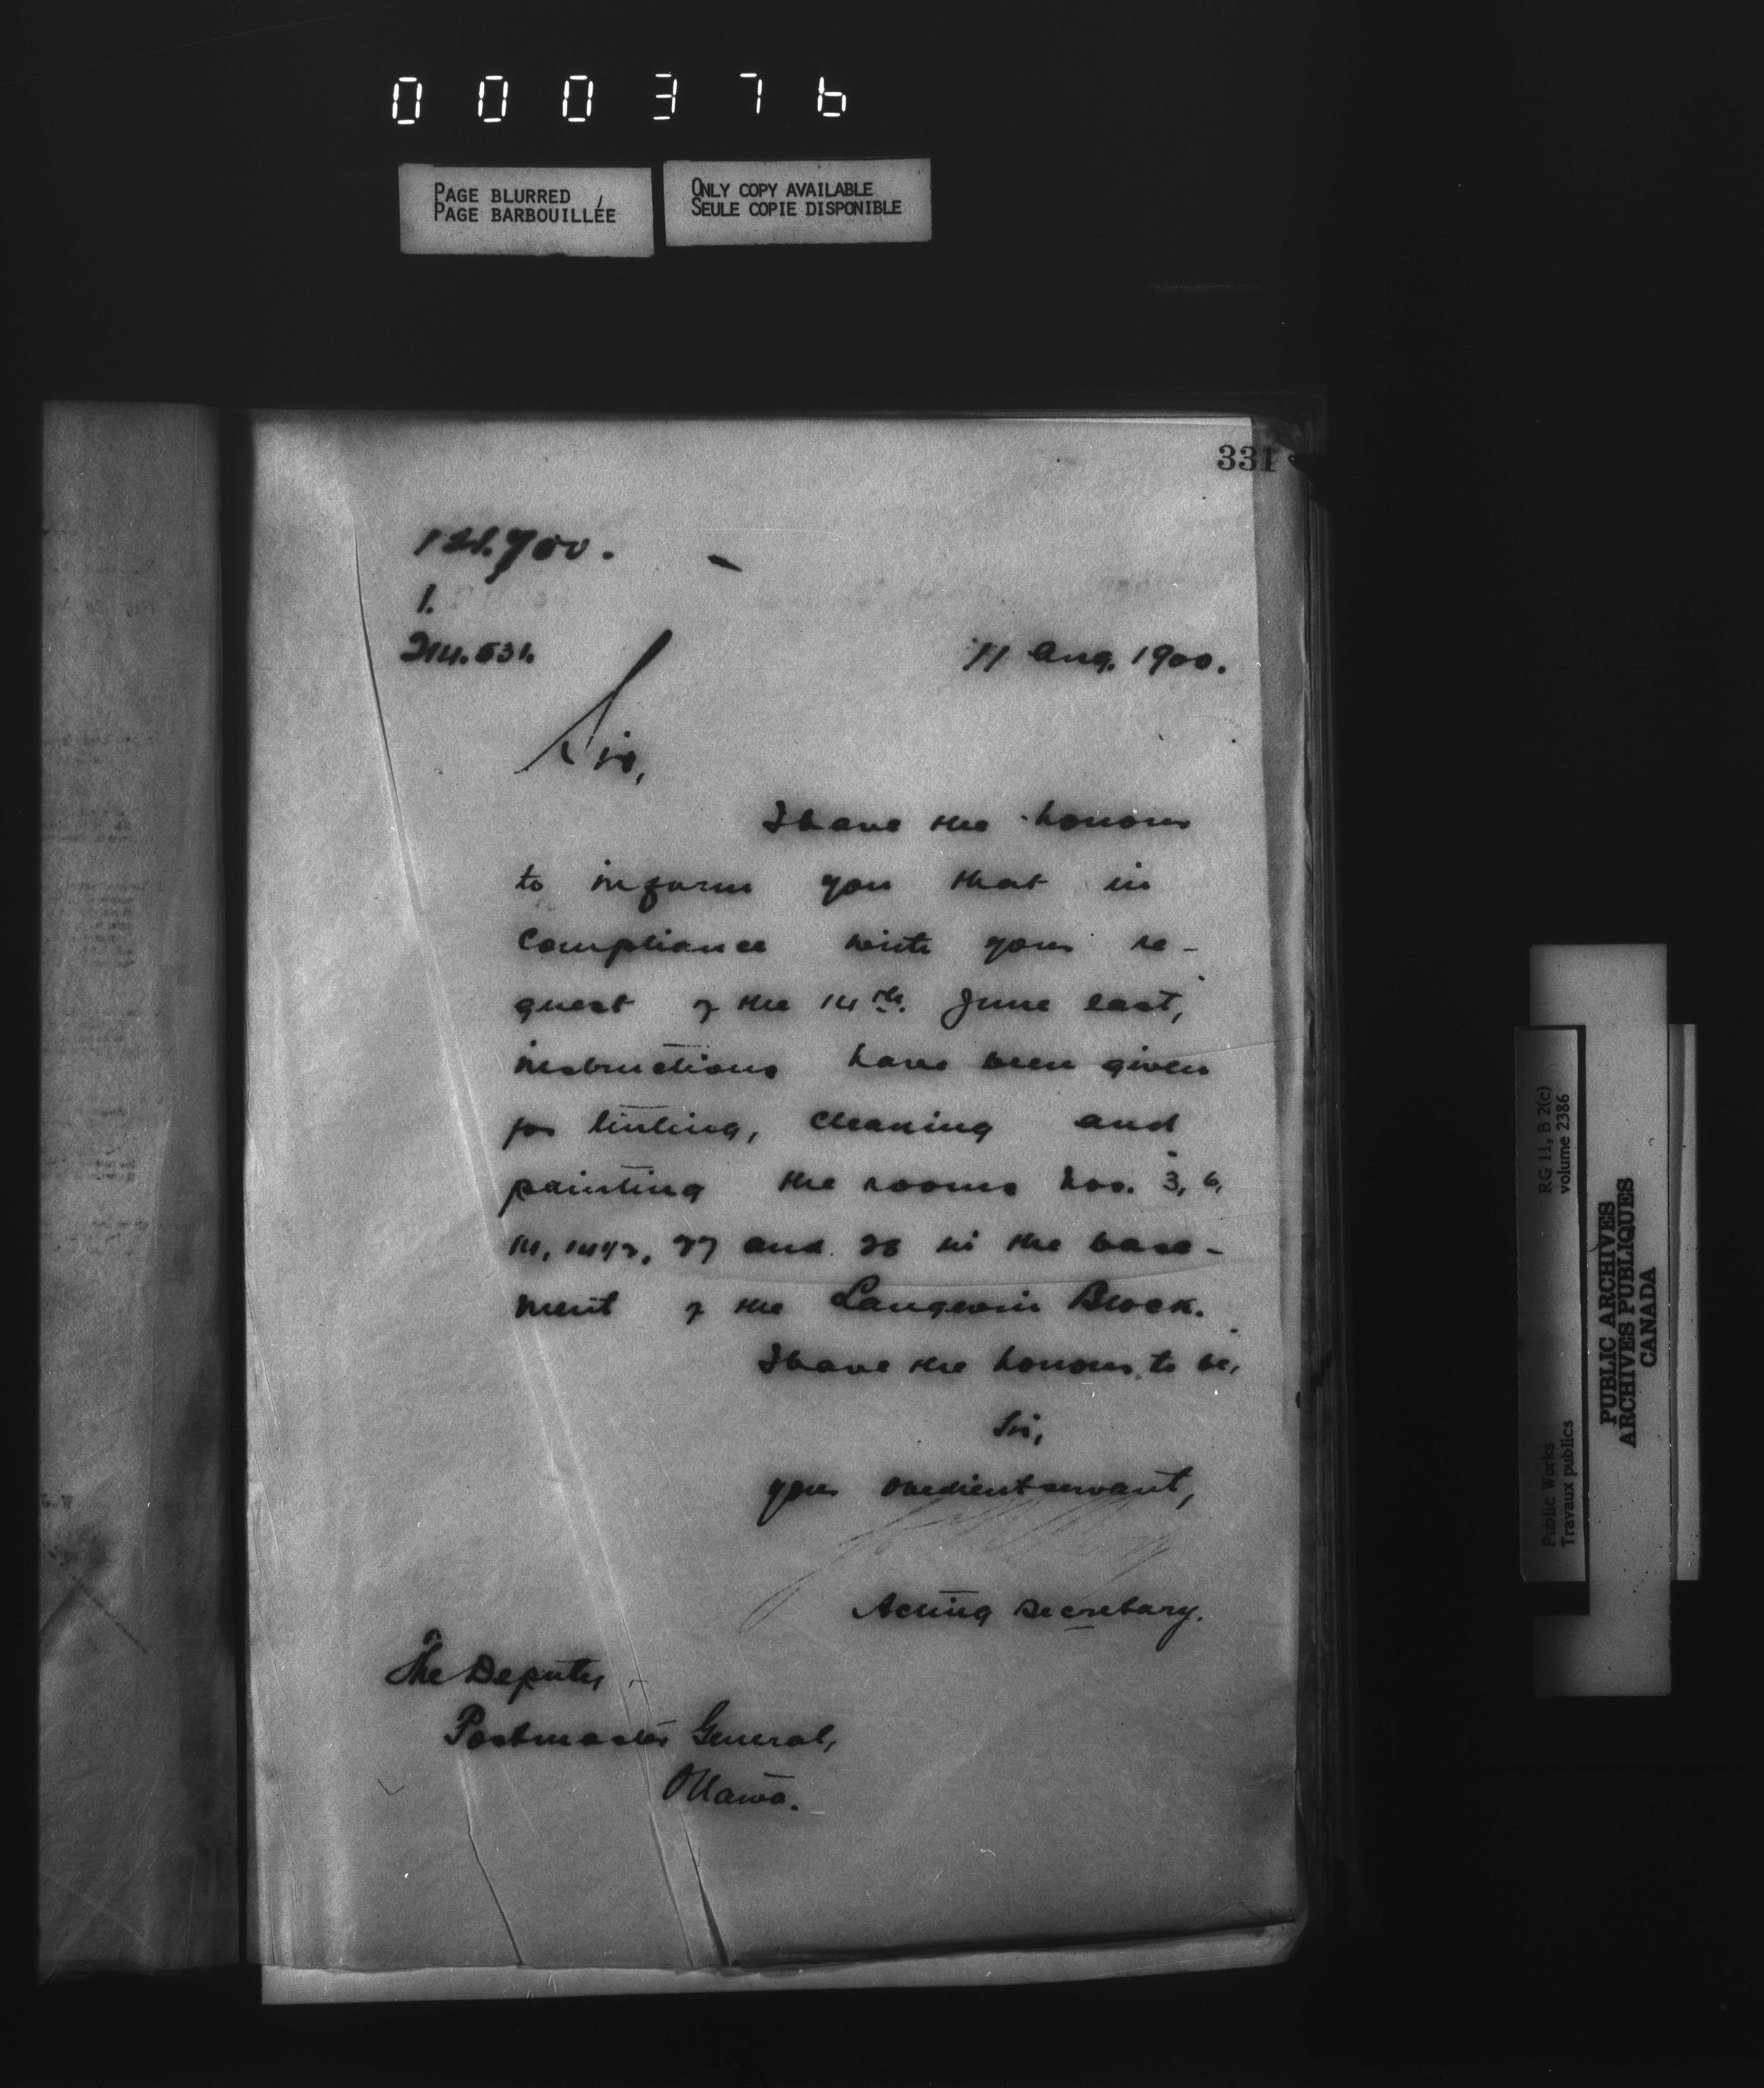 000376
PAGE BLURRED
PAGE BARBOUILLÉE
ONLY COPY AVAILABLE
SEULE COPIE DISPONIBLE
331
1.
214.531.
Aug. 1900.
Sir,
I have the honour
to inform you that in
compliance with your re-
quest of the 14th. June last,
instructions have been given
for tinting, cleaning and
painting the rooms nos. 3, 6,
14, 14½, 27 and 28 in the base-
ment of the Langevin Block.
I have the honour to be,
Sir,
your obedient servant,
Acting Secretary.
The Deputy
Postmaster General,
Ottawa.
Public Works
Travaux publics
RG 11, B 2(c)
volume 2386
PUBLIC ARCHIVES
ARCHIVES PUBLIQUES
CANADA